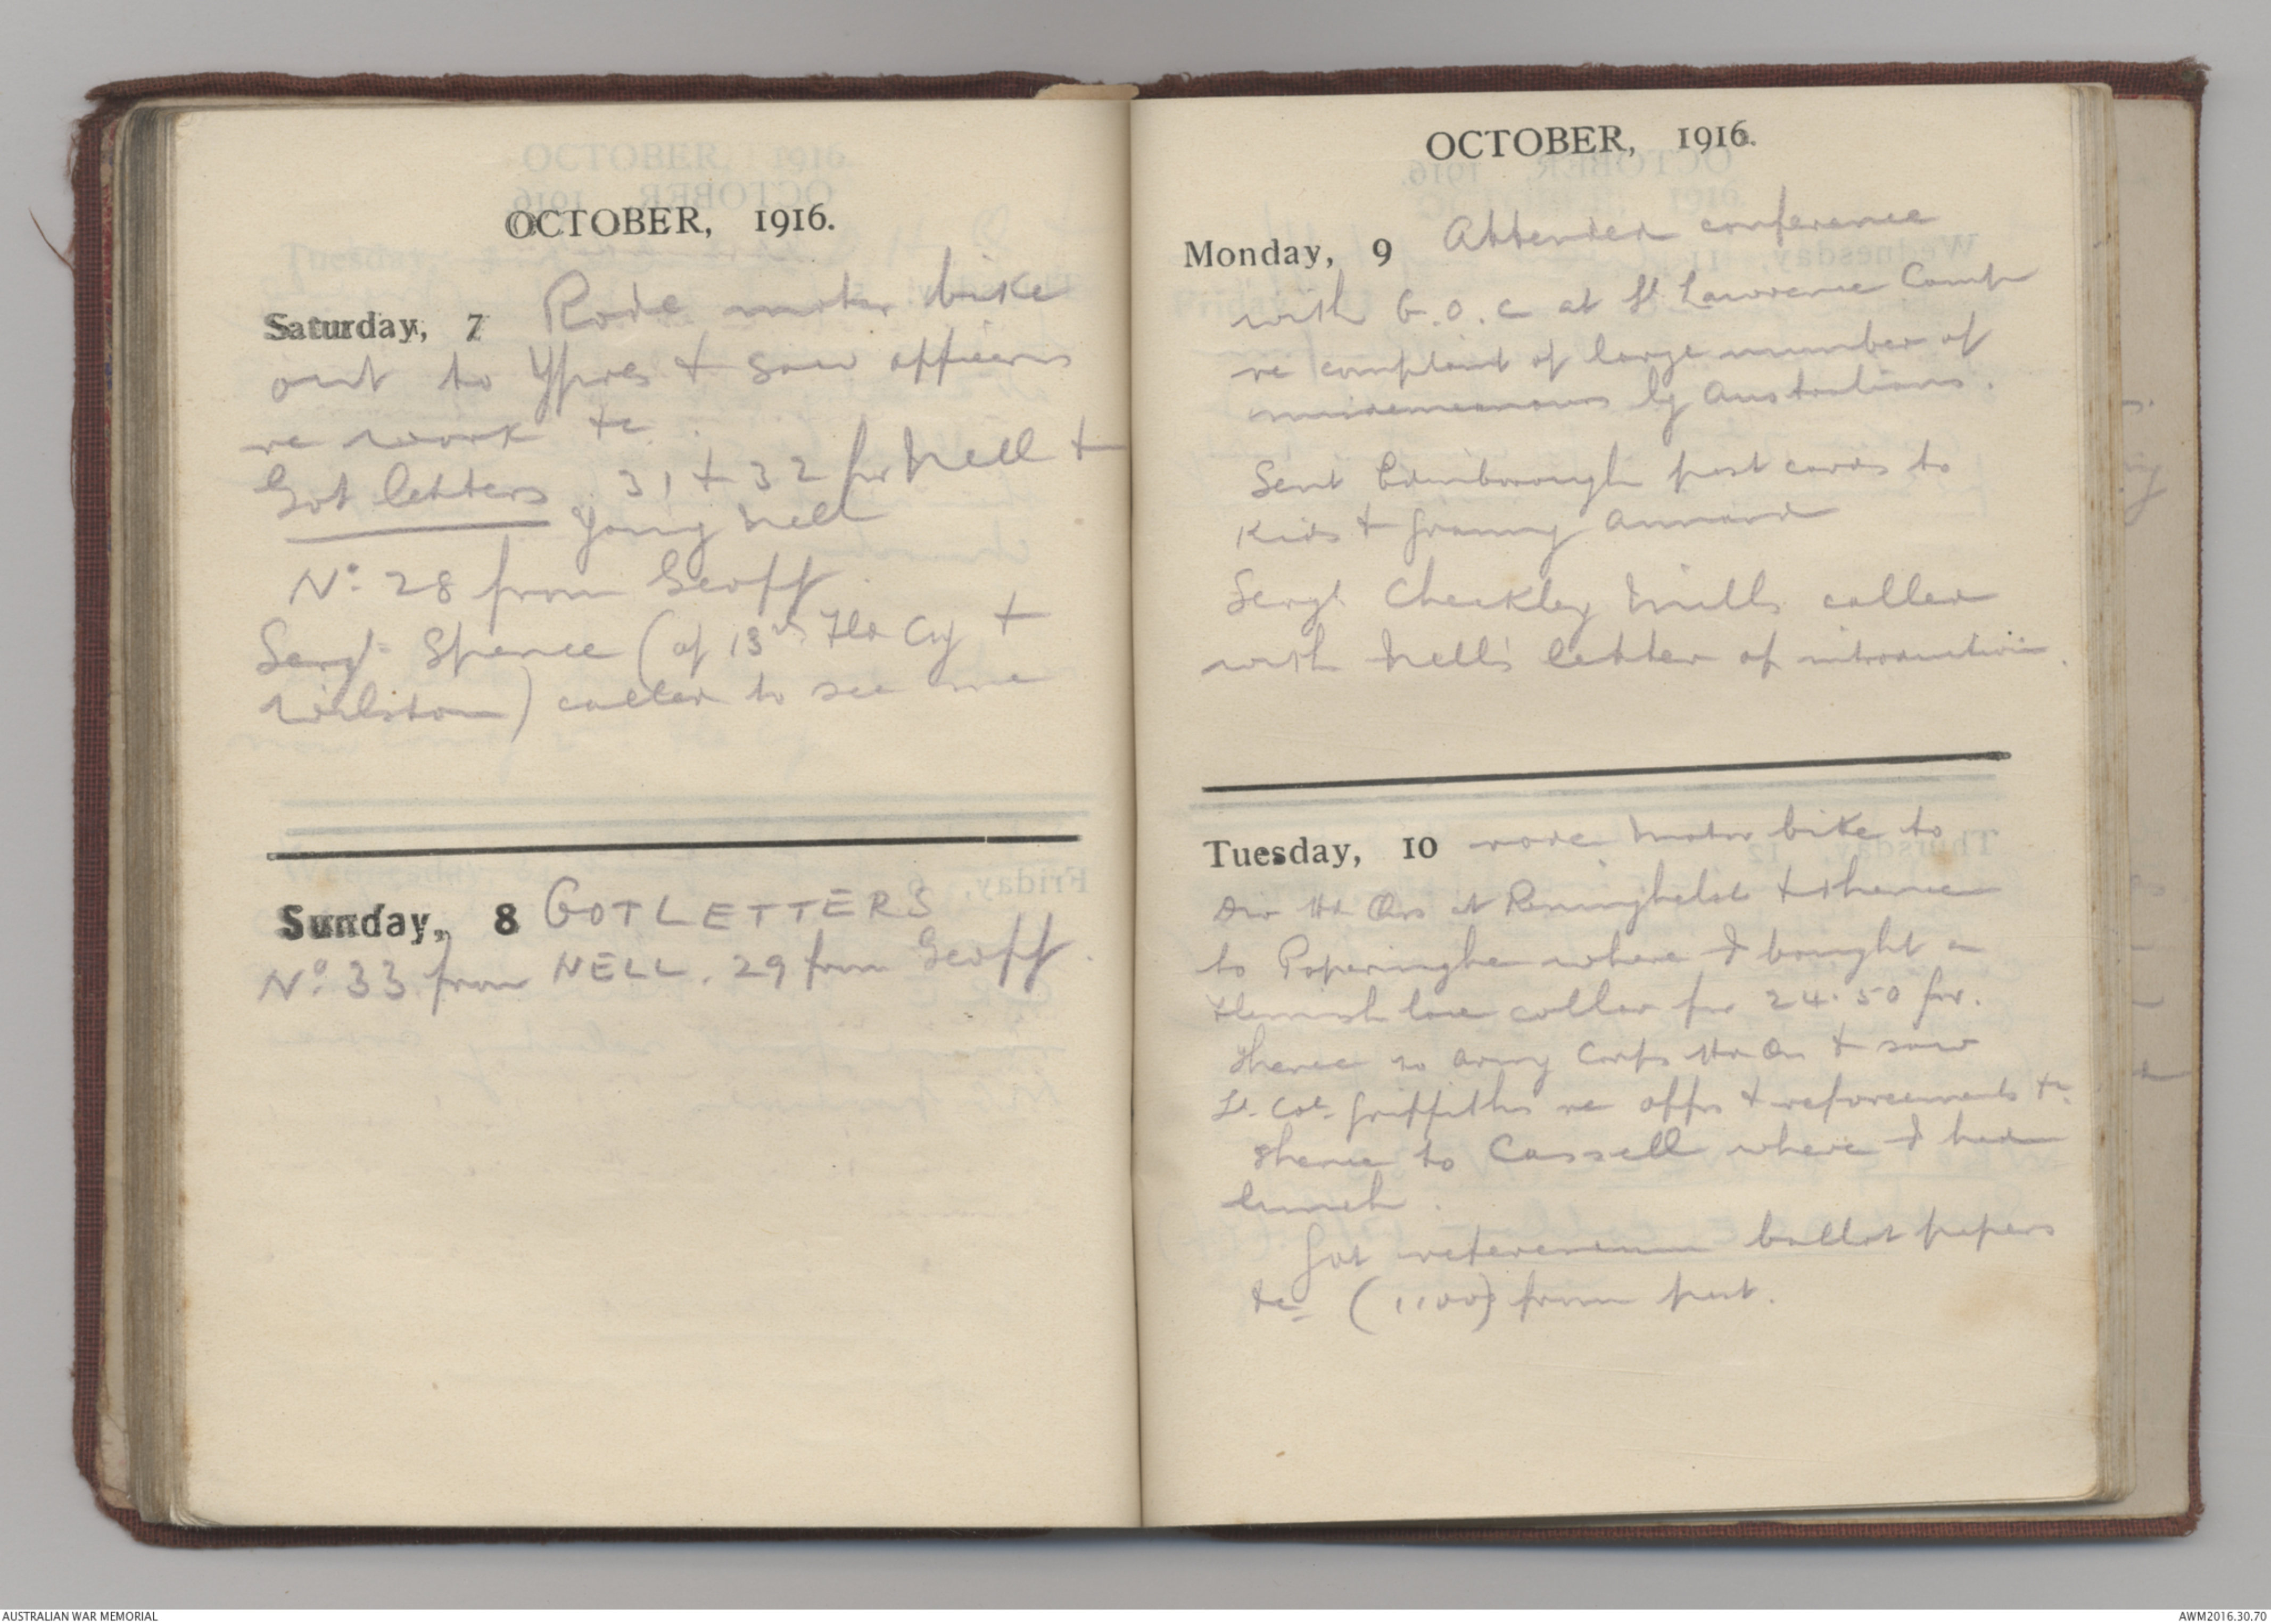 OCTOBER, 1916.
Saturday, 7 Rode motor bike
out to Ypres & saw officers
re work &c.
Got letters 31 & 32 fr Nell &
young Nell
No. 28 from Geoff.
Sergt. Spence (of 13th Fld Coy &
Wilston) called to see me
Sunday, 8 GOT LETTERS
No. 33 from NELL. 29 from Geoff.
OCTOBER, 1916.
Monday, 9 Attended conference
with G.O.C at St Lawrence Camp
re complaint of large number of
misdemeanours by Australians.
Sent Edinborough post cards to
Kids & Granny Annand
Sergt. Checkley Mills called
with Nell's letter of introduction.
Tuesday, 10 rode motor bike to
Div Hd Qrs at Reninghelst & thence
to Poperinghe where I bought a
Flemish lace collar for 24.50 fr.
thence to Army Corps Hd Qrs & saw
Lt. Col. Griffiths re offrs & reforcements &c.
thence to Cassell where I had
lunch.
Got referendum ballot papers
&c (1100) from post.
AUSTRALIAN WAR MEMORIAL
AWM2016.30.70